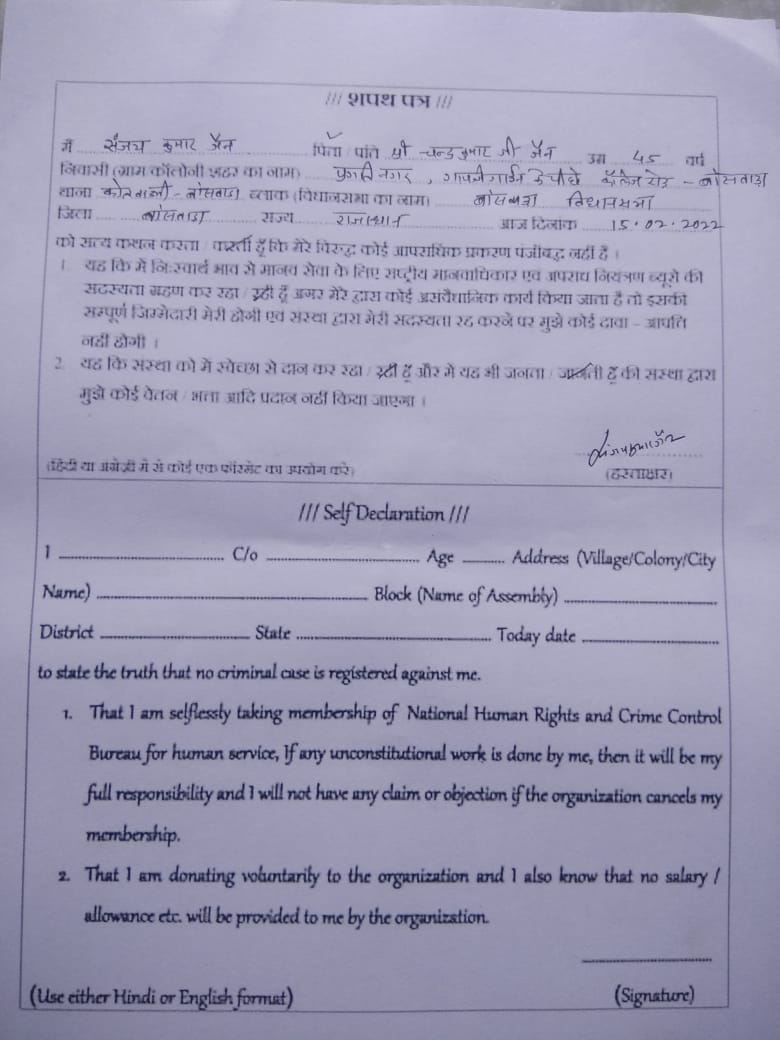 /// शपथ पत्र ///
मैं संजय कुमार जैन पिता / पति श्री चन्द्रकुमार जी जैन उम्र 45 वर्ष
निवासी (ग्राम कॉलोनी शहर का नाम) प्रगति नगर, के पीछे कॅालेज रोड - बांसवाड़ा
थाना कोतवाली - बांसवाड़ा ब्लाक (विधानसभा का नाम) बांसवाड़ा विधानसभा
जिला बांसवाड़ा राज्य राजस्थान आज दिनांक 15.02.2022
को सत्य कथन करता / करती हूँ कि मेरे विरुद्ध कोई आपराधिक प्रकरण पंजीबद्ध नहीं है ।
1. यह कि मैं निःस्वार्थ भाव से मानव सेवा के लिए राष्ट्रीय मानवाधिकार एवं अपराध नियंत्रण ब्यूरो की
सदस्यता ग्रहण कर रहा / रही हूँ अगर मेरे द्वारा कोई असंवैधानिक कार्य किया जाता है तो इसकी
सम्पूर्ण जिम्मेदारी मेरी होगी एवं संस्था द्वारा मेरी सदस्यता रद्द करने पर मुझे कोई दावा - आपत्ति
नहीं होगी ।
2. यह कि संस्था को मैं स्वेच्छा से दान कर रहा / रही हूँ और मे यह भी जनता / जानती हूँ की संस्था द्वारा
मुझे कोई वेतन / भत्ता आदि प्रदान नहीं किया जाएगा ।
(हिंदी या अंग्रेजी में से कोई एक फॉरमेट का उपयोग करे)
(हस्ताक्षर)
/// Self Declaration ///
I ____________ C/o ____________ Age ____ Address (Village/Colony/City
Name) ____________ Block (Name of Assembly) ____________
District ____________ State ____________ Today date ____________
to state the truth that no criminal case is registered against me.
1. That I am selflessly taking membership of National Human Rights and Crime Control
Bureau for human service, If any unconstitutional work is done by me, then it will be my
full responsibility and I will not have any claim or objection if the organization cancels my
membership.
2. That I am donating voluntarily to the organization and I also know that no salary /
allowance etc. will be provided to me by the organization.
(Use either Hindi or English format) (Signature)